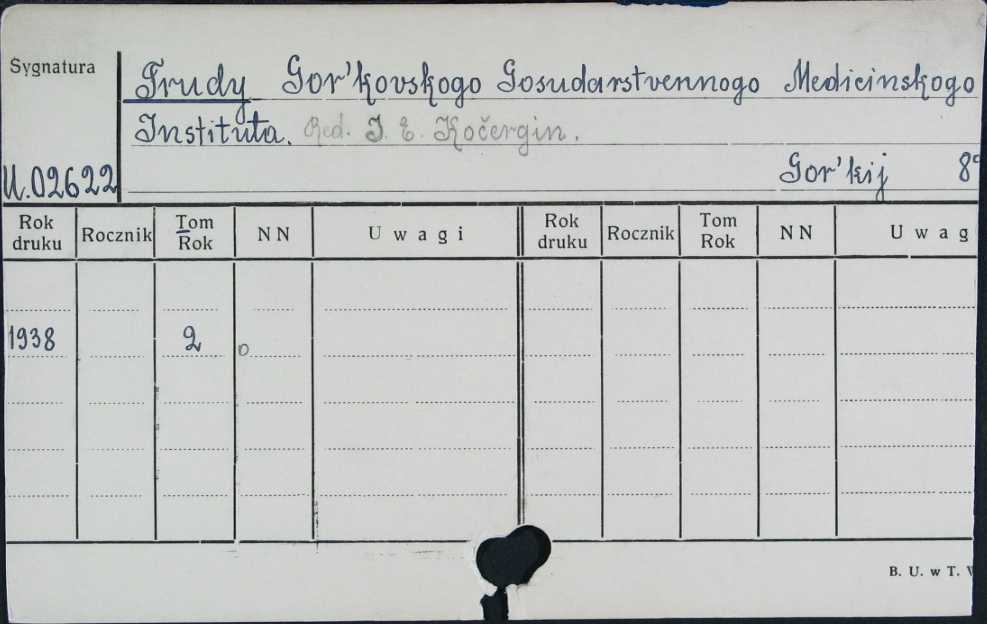 Sygnatura
Trudy Gor'kovskogo Gosudarstvennogo Medicinskogo
Instituta. Red. I. E. Kočergin.
U.02622
Gor'kij 8°
Rok druku Rocznik Tom Rok NN Uwagi Rok druku Rocznik Tom Rok NN Uwag
1938 2 0
B. U. w T.